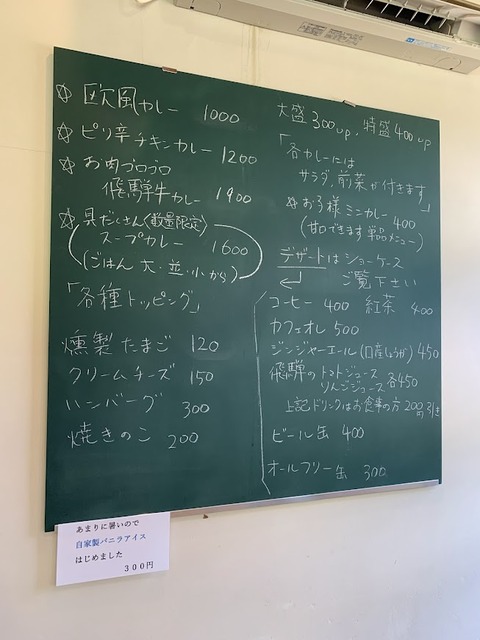 ☆ 欧風カレー 1000
☆ ピリ辛チキンカレー 1200
☆ お肉ゴロゴロ
飛騨牛カレー 1900
☆ 具だくさん(数量限定)
スープカレー 1600
(ごはん 大・並・小から)
「各種トッピング」
燻製たまご 120
クリームチーズ 150
ハンバーグ 300
焼きのこ 200
大盛300up、特盛400up
「各カレーには
サラダ、前菜が付きます」
☆ お子様ミニカレー 400
(甘口できます 単品メニュー)
デザートはショーケース
ご覧下さい
コーヒー 400 紅茶 400
カフェオレ 500
ジンジャーエール(国産しょうが) 450
飛騨の トマトジュース
りんごジュース 各450
上記ドリンクはお食事の方200円引き
ビール缶 400
オールフリー缶 300
あまりに暑いので
自家製バニラアイス
はじめました
300円